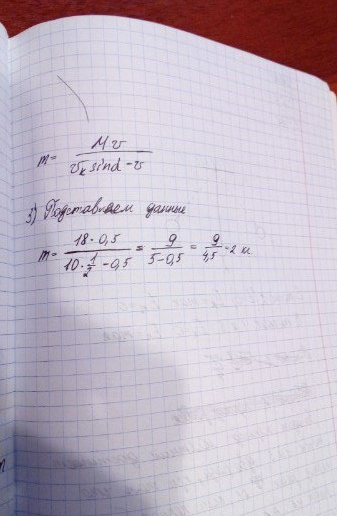 m = Mv / (v_к sinα - v)
3) Подставляем данные
m = (18·0,5) / (10·1/2 - 0,5) = 9 / (5-0,5) = 9 / 4,5 = 2 кг.